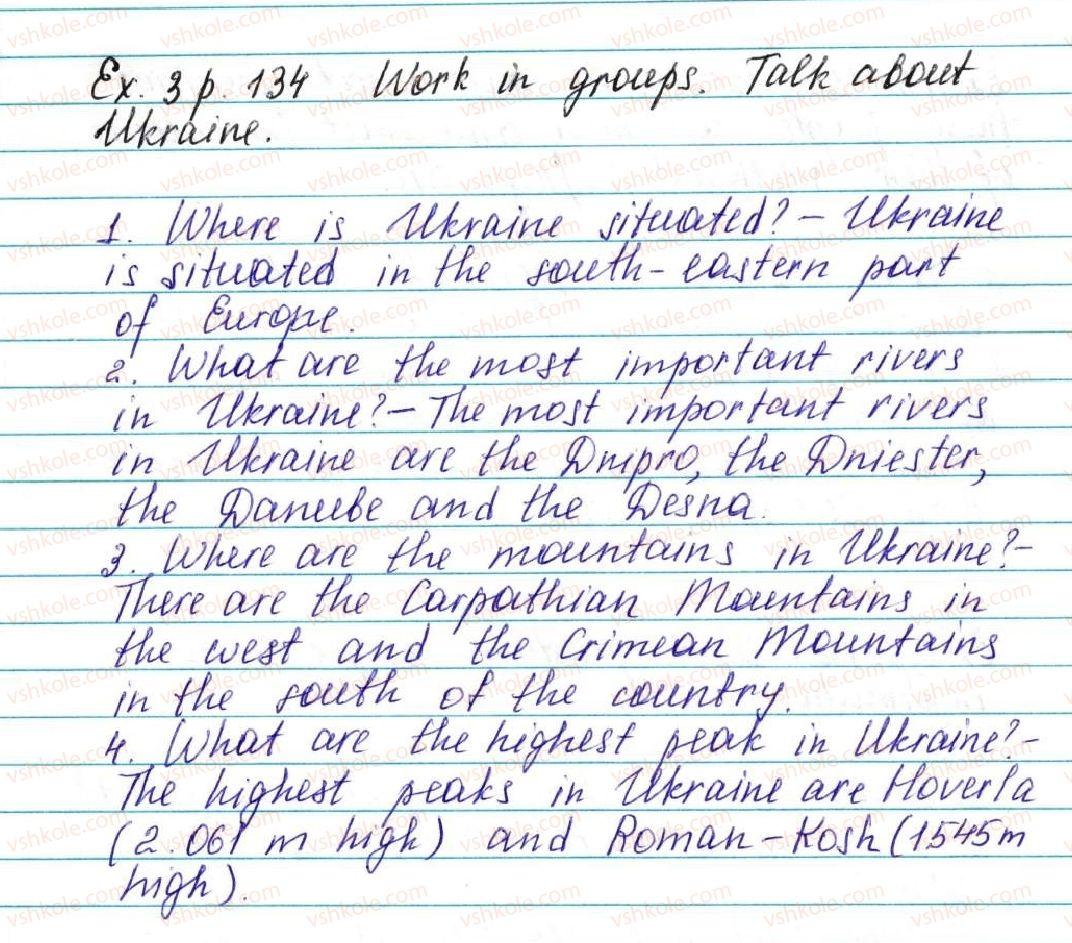 Ex. 3 p. 134 Work in groups. Talk about
Ukraine.
1. Where is Ukraine situated? – Ukraine
is situated in the south-eastern part
of Europe.
2. What are the most important rivers
in Ukraine? – The most important rivers
in Ukraine are the Dnipro, the Dniester,
the Danube and the Desna.
3. Where are the mountains in Ukraine? –
There are the Carpathian Mountains in
the west and the Crimean Mountains
in the south of the country.
4. What are the highest peak in Ukraine? –
The highest peaks in Ukraine are Hoverla
(2.061 m high) and Roman-Kosh (1545m
high).